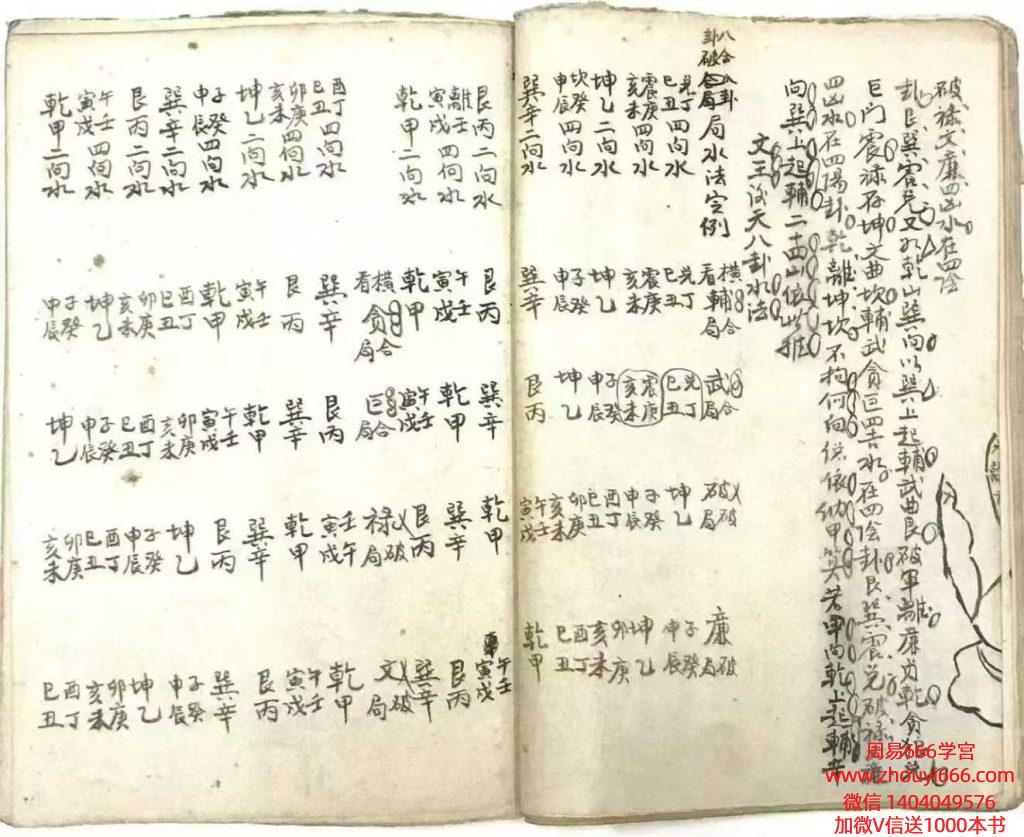 破祿文廉四凶水在四陰
卦艮巽震兌又如乾山巽向以巽上起輔武曲艮破軍離廉乃乾貪狼兌
巨門震祿存坤文曲坎輔武貪巨四吉水在四陰卦艮巽震兌破祿
四凶水在四陽卦乾離坤坎不拘何向俱依納甲算若甲向乾上起輔辛
向巽上起輔二十四山依此推
文王後天八卦水法
八合八卦
卦破合局局水法定例
橫看輔合局
武合局
破破局
廉破局
巳丑兌丁四向水
巳丑兌丁
巳丑兌丁
坤乙
子癸申辰
亥未震庚四向水
亥未震庚
亥未震庚
子癸申辰
坤乙
坤乙二向水
坤乙
子癸申辰
巳丑酉丁
亥未卯庚
坎癸申辰四向水
申辰子癸
坤乙
亥未卯庚
巳丑酉丁
巽辛二向水
巽辛
艮丙
寅戌午壬
乾甲
艮丙二向水
艮丙
巽辛
乾甲
寅戌午壬
離壬寅戌四向水
寅戌午壬
乾甲
巽辛
艮丙
乾甲二向水
乾甲
寅戌午壬
艮丙
巽辛
橫看貪合局
巨合局
祿破局
文破局
巳丑酉丁四向水
巽辛
艮丙
寅戌壬午
乾甲
亥未卯庚四向水
艮丙
巽辛
乾甲
寅戌午壬
坤乙二向水
寅戌午壬
乾甲
巽辛
艮丙
申辰子癸四向水
乾甲
寅戌午壬
艮丙
巽辛
巽辛二向水
巳丑酉丁
亥未卯庚
坤乙
申辰子癸
艮丙二向水
亥未卯庚
巳丑酉丁
申辰子癸
坤乙
寅戌午壬四向水
坤乙
申辰子癸
巳丑酉丁
亥未卯庚
乾甲二向水
申辰子癸
坤乙
亥未卯庚
巳丑酉丁
周易666学宫
www.zhouyi666.com
微信 1404049576
加微V信送1000本书